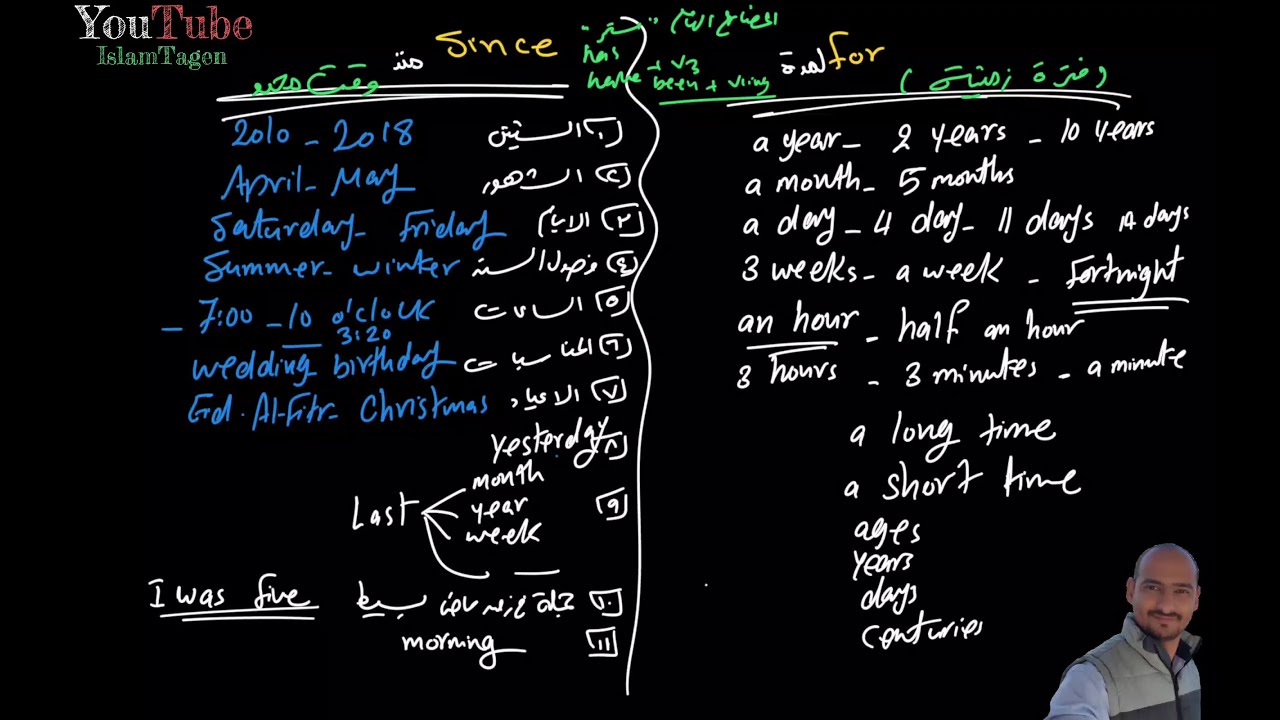 YouTube
IslamTagen
المضارع التام "مستمر"
has
have + V3
been + Ving
منذ Since
وقت محدد
لمدة for
(فترة زمنية)
2010 - 2018 السنين [١]
April - May الشهور [٢]
Saturday - Friday الايام [٣]
Summer - winter فصول السنة [٤]
- 7:00 - 10 o'clock الساعات [٥]
3:20
wedding birthday المناسبات [٦]
Eid. Al-Fitr - Christmas الاعياد [٧]
yesterday [٨]
Last month year week [٩]
I was five جملة في زمن ماضي بسيط [١٠]
morning [١١]
a year - 2 years - 10 years
a month - 5 months
a day - 4 day - 11 days 14 days
3 weeks - a week - fortnight
an hour - half an hour
3 hours - 3 minutes - a minute
a long time
a short time
ages
years
days
centuries